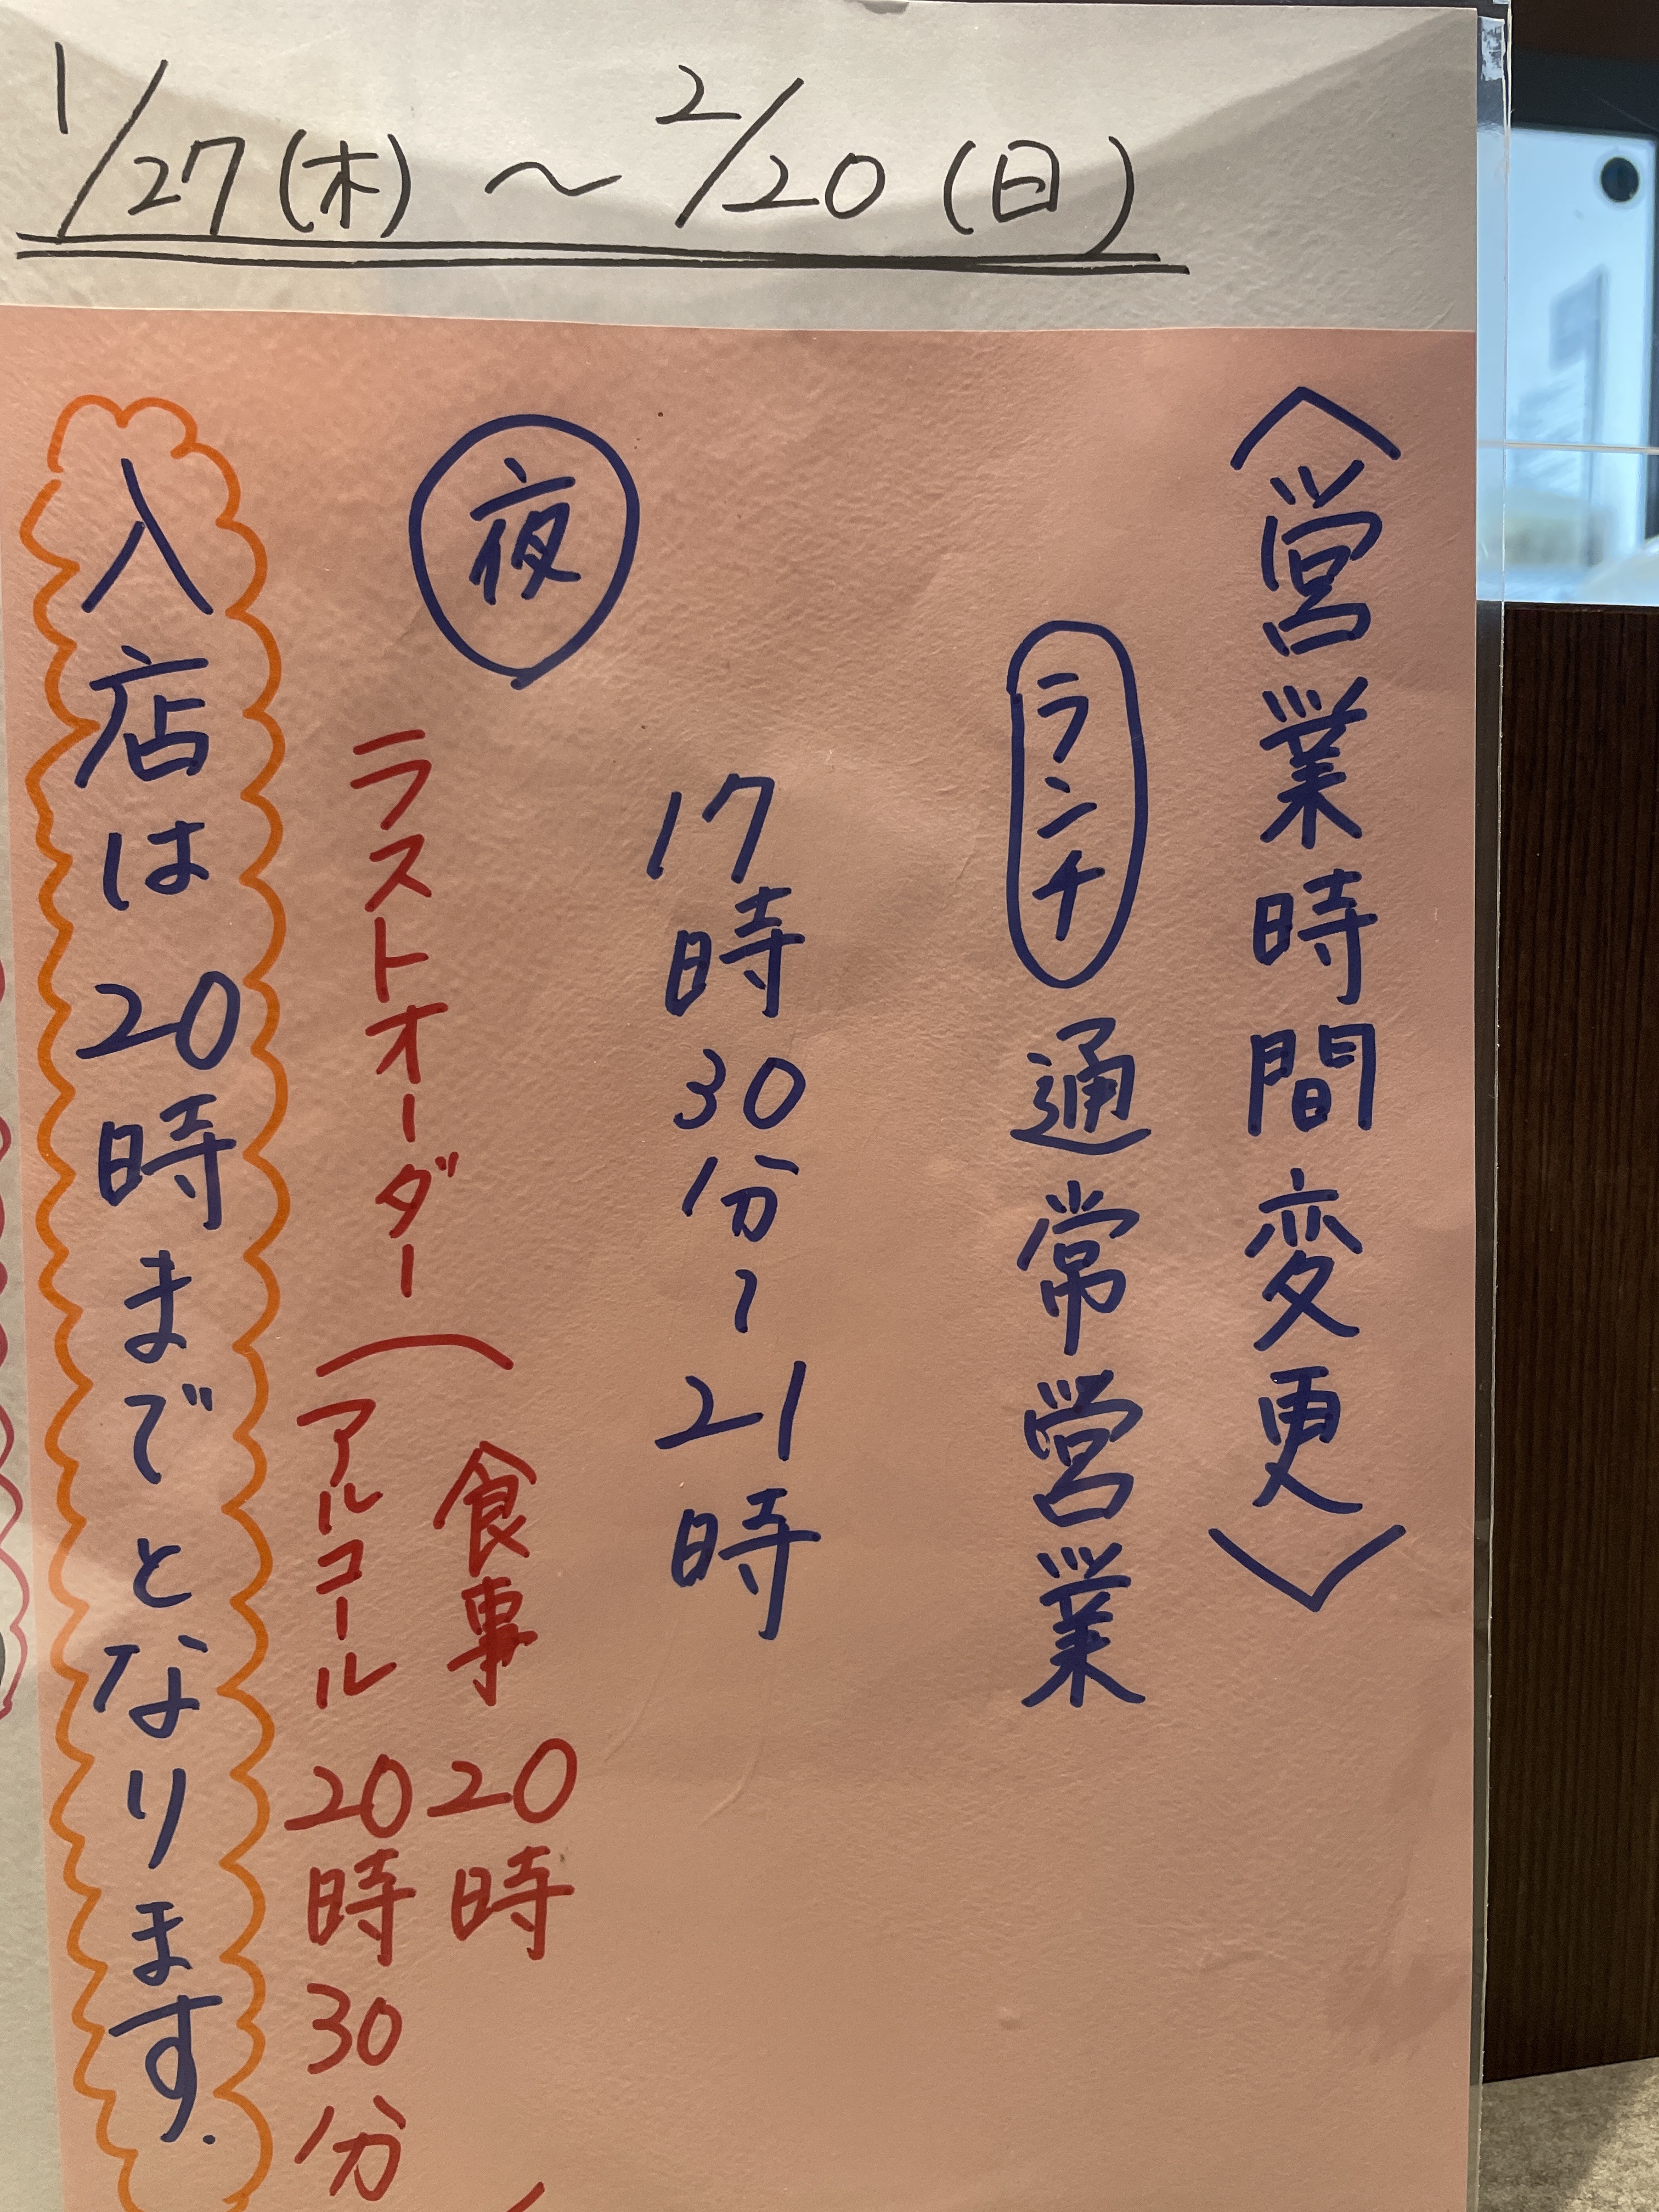 1/27(木)～2/20(日)
〈営業時間変更〉
ランチ 通常営業
17時30分～21時
夜
ラストオーダー(食事 20時
アルコール 20時30分
入店は20時までとなります.